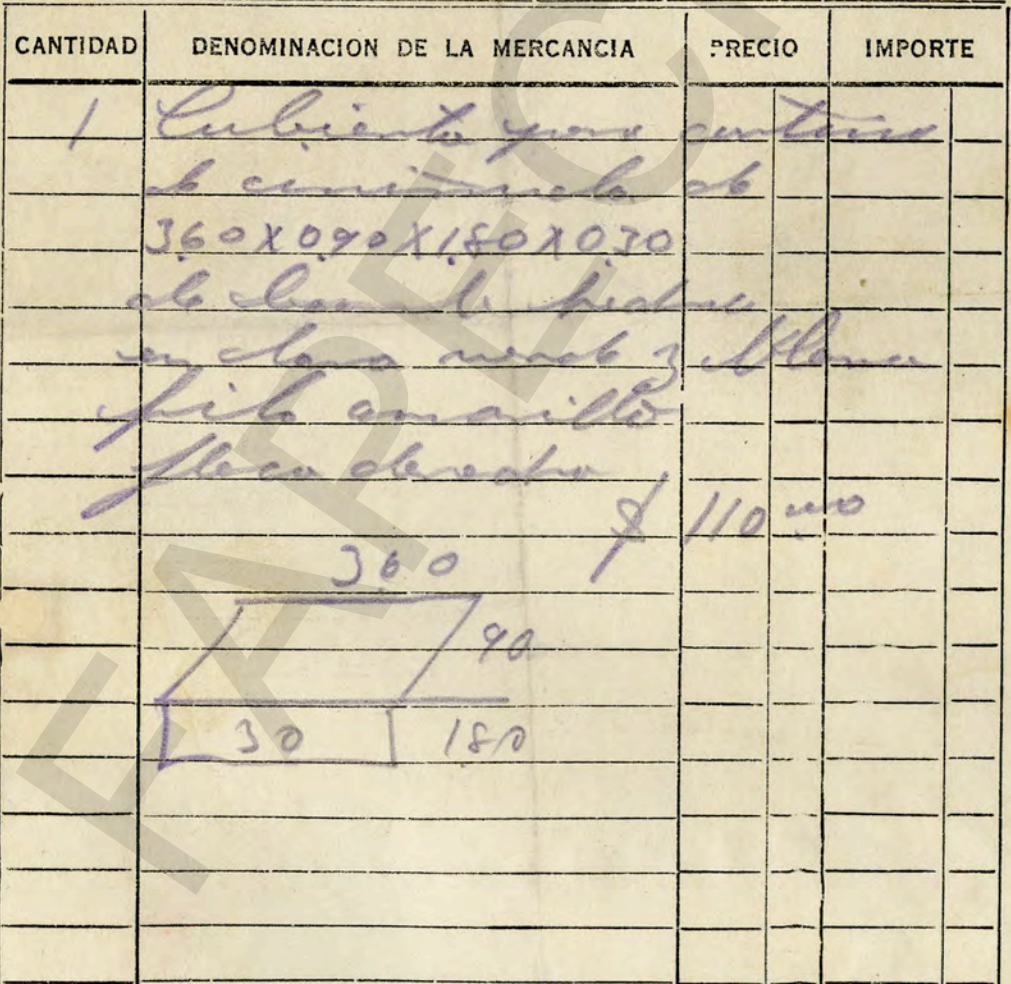 CANTIDAD DENOMINACION DE LA MERCANCIA PRECIO IMPORTE
1 Cubierta para cortina
de de
3.60 X 0.90 X 1.80 X 0.30
de
en claro verde y blanco
filo amarillo
fleco derecho
$ 110
360
90
30 180
FAPEC